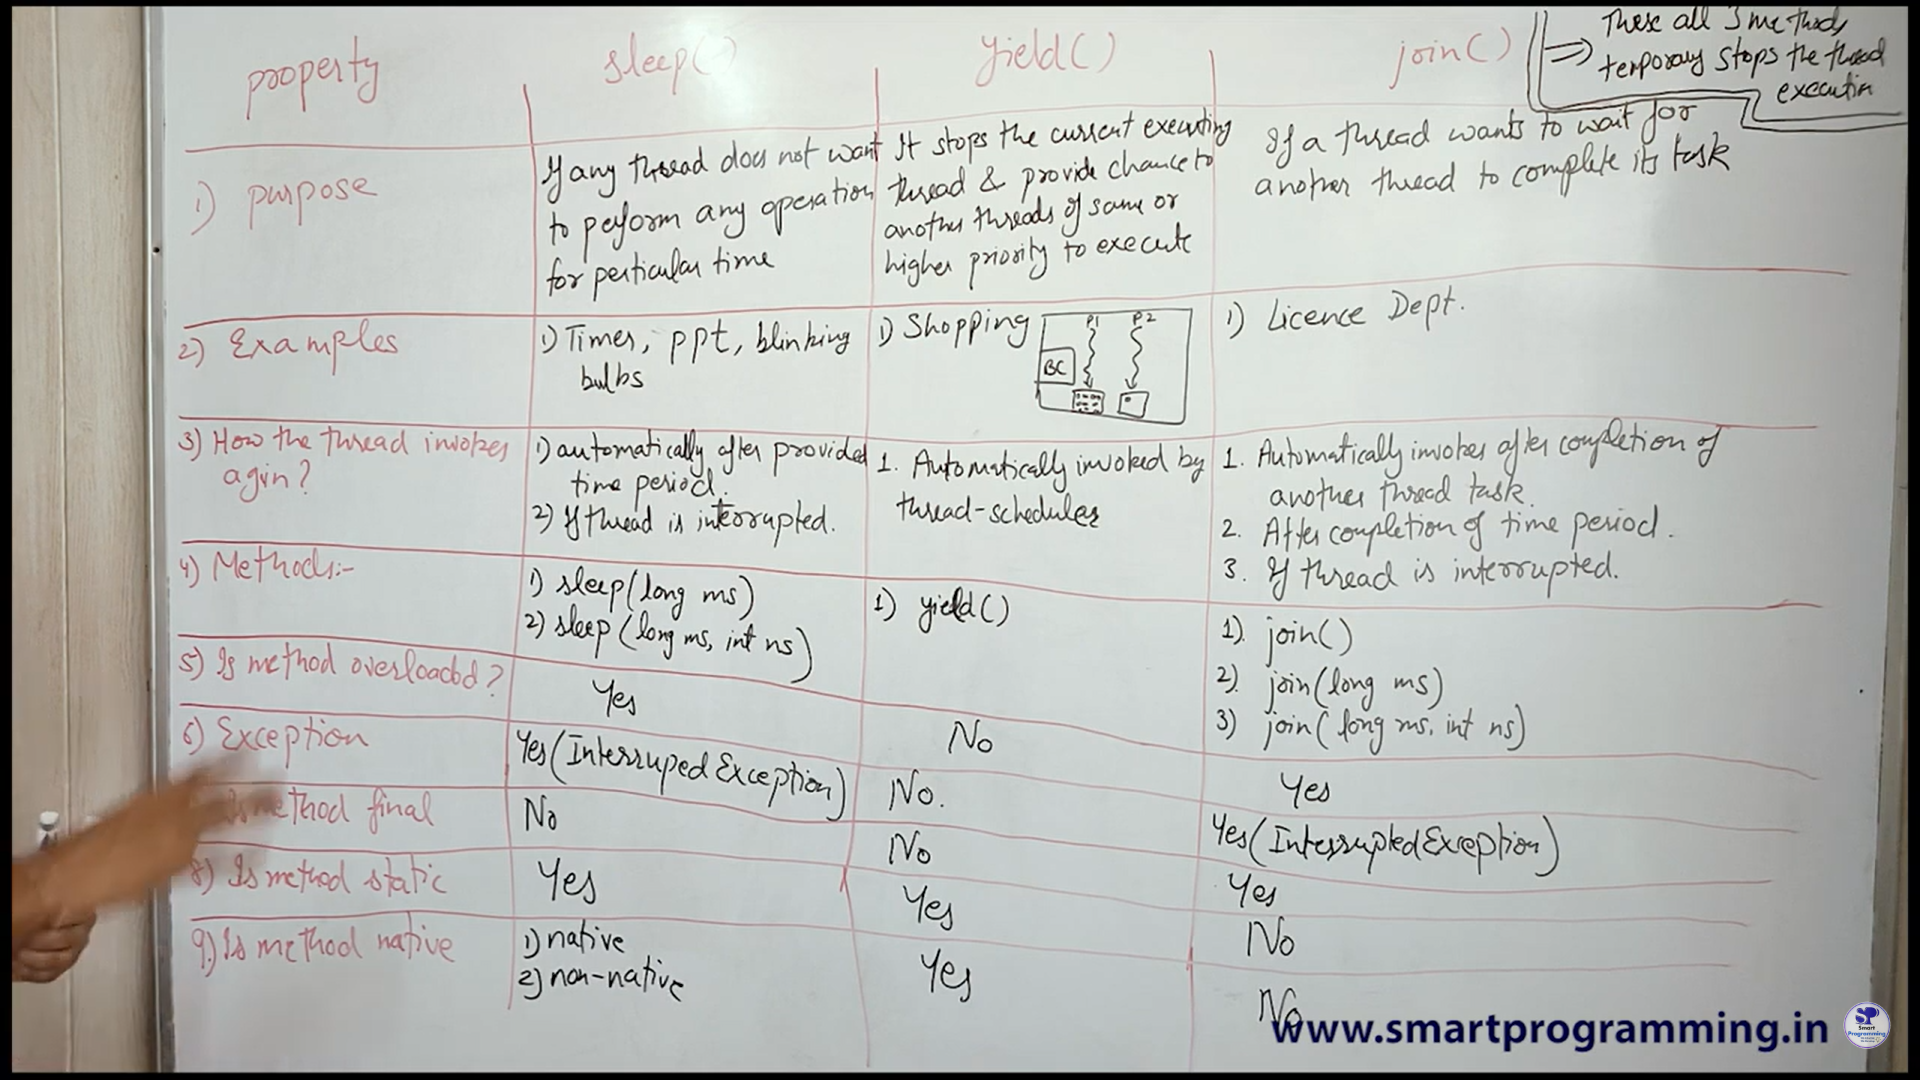 property
sleep()
yield()
join()
These all 3 methods
temporary stops the thread
execution
1) purpose
If any thread does not want
to perform any operation
for perticular time
It stops the current executing
thread & provide chance to
another threads of same or
higher priority to execute
If a thread wants to wait for
another thread to complete its task
2) Examples
1) Timer, ppt, blinking
bulbs
1) Shopping
P1 P2
BC
1) Licence Dept.
3) How the thread invokes
agin?
1) automatically after provided
time period.
2) If thread is interrupted.
1. Automatically invoked by
thread-scheduler
1. Automatically invokes after completion of
another thread task.
2. After completion of time period.
3. If thread is interrupted.
4) Methods:-
1) sleep(long ms)
2) sleep(long ms, int ns)
1) yield()
1). join()
2). join(long ms)
3) join(long ms, int ns)
5) Is method overloadd?
Yes
No
Yes
6) Exception
Yes(InterrupedException)
No.
Yes(InterruptedException)
Is method final
No
No
Yes
8) Is method static
Yes
Yes
No
9.) Is method native
1) native
2) non-native
Yes
No
www.smartprogramming.in
SP
Smart
Programming